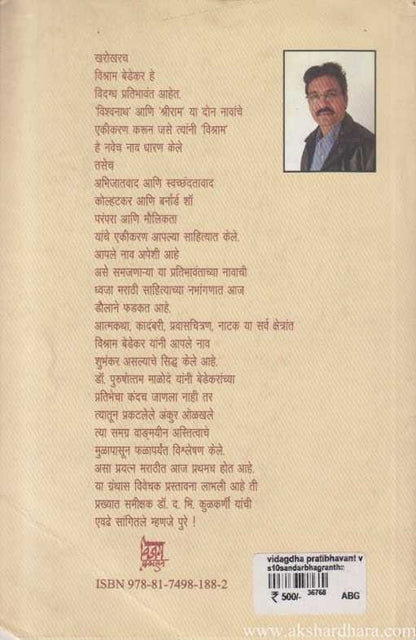 खरोखरच
विश्राम बेडेकर हे
विदग्ध प्रतिभावंत आहेत.
'विश्वनाथ' आणि 'श्रीराम' या दोन नावांचे
एकीकरण करून जसे त्यांनी 'विश्राम'
हे नवेच नाव धारण केले
तसेच
अभिजातवाद आणि स्वच्छंदतावाद
कोल्हटकर आणि बर्नार्ड शॉ
परंपरा आणि मौलिकता
यांचे एकीकरण आपल्या साहित्यात केले.
आपले नाव अपेशी आहे
असे समजणाऱ्या या प्रतिभावंताच्या नावाची
ध्वजा मराठी साहित्याच्या नभांगणात आज
डौलाने फडकत आहे.
आत्मकथा, कादंबरी, प्रवासचित्रण, नाटक या सर्व क्षेत्रांत
विश्राम बेडेकर यांनी आपले नाव
शुभंकर असल्याचे सिद्ध केले आहे.
डॉ. पुरुषोत्तम माळोदे यांनी बेडेकरांच्या
प्रतिभेचा कंदच जाणला नाही तर
त्यातून प्रकटलेले अंकुर ओळखले
त्या समग्र वाङ्मयीन अस्तित्वाचे
मुळापासून फळापर्यंत विश्लेषण केले.
असा प्रयत्न मराठीत आज प्रथमच होत आहे.
या ग्रंथास विवेचक प्रस्तावना लाभली आहे ती
प्रख्यात समीक्षक डॉ. द. भि. कुळकर्णी यांची
एवढे सांगितले म्हणजे पुरे !
ISBN 978-81-7498-188-2
vidagdha pratibhavant v
s10sandarbhagrantha
₹ 500/- 36768 ABG
www.akshardhara.com